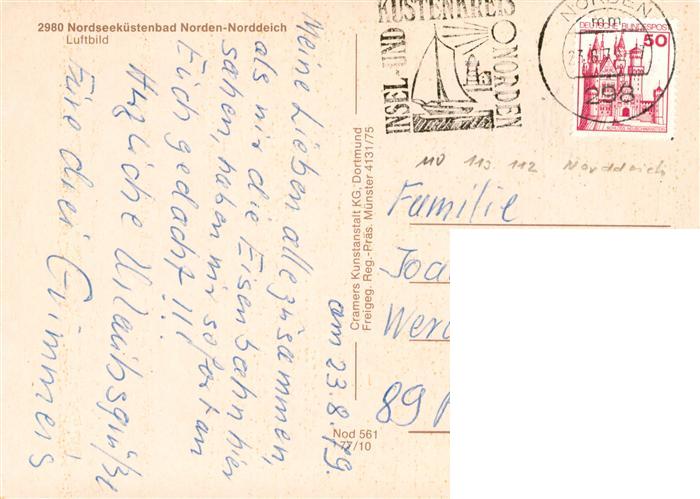 2980 Nordseeküstenbad Norden-Norddeich
Luftbild
am 23.8.79.
Meine Lieben allezusammen,
als wir die Eisenbahn hier
sahen, haben wir sofort an
Euch gedacht!!!
Herzliche Urlaubsgrüße
Eure drei Grimmeis
Cramers Kunstanstalt KG, Dortmund
Freigeg. Reg.-Präs. Münster 4131/75
Nod 561
77/10
INSEL- UND
KÜSTENKREIS
NORDEN
NORDEN
298
DEUTSCHE BUNDESPOST
50
110 113 112 Norddeich
Familie
Joa
Wer
89